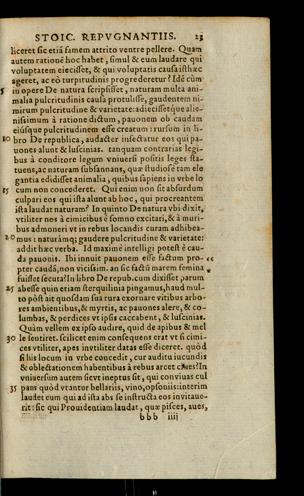 STOIC. REPVGNANTIIS. 23
liceret sic etiā famem attrito ventre pellere. Quam
autem rationē hoc habet, simul & eum laudare qui
voluptatem eiecisset, & qui voluptatis causa isthæc
ageret, ac eò turpitudinis progrederetur? Idē cùm
5 in opere De natura scripsisset, naturam multa ani-
malia pulcritudinis causa protulisse, gaudentem ni-
mirum pulcritudine & varietate: adiecissetque alie-
nissimum à ratione dictum, pauonem ob caudam
eiúsque pulcritudinem esse creatum: rursum in li-
10 bro De republica, audacter insectatur eos qui pa-
uones alunt & luscinias. tanquam contrarias legi-
bus à conditore legum vniuersi positis leges sta-
tuens, ac naturam subsannans, quæ studiose tam ele
gantia edidisset animalia, quibus sapiens in vrbe lo
15 cum non concederet. Qui enim non sit absurdum
culpari eos qui ista alunt ab hoc, qui procreantem
ista laudat naturam? In quinto De natura vbi dixit,
vtiliter nos à cimicibus è somno excitari, & à muri-
bus admoneri vt in rebus locandis curam adhibea-
20 mus: naturámq; gaudere pulcritudine & varietate:
addit hæc verba. Id maximè intelligi potest è cau-
da pauonis. Ibi innuit pauonem esse factum pro-
pter caudā, non vicissim. an sic factū marem femina
fuisset secuta? In libro De repub. cum dixisset, parum
25 abesse quin etiam sterquilinia pingamus, haud mul-
to pòst ait quosdam sua rura exornare vitibus arbo-
res ambientibus, & myrtis, ac pauones alere, & co-
lumbas, & perdices vt ipsis caccabent, & luscinias.
Quàm vellem ex ipso audire, quid de apibus & mel
30 le sentiret. scilicet enim consequens erat vt si cimi-
ces vtiliter, apes inutiliter datas esse diceret. quòd
si his locum in vrbe concedit, cur auditu iucundis
& oblectationem habentibus à rebus arcet ciues? In
vniuersum autem sicut ineptus sit, qui conuiuas cul
35 pans quòd vtantur bellariis, vino, opsoniis: interim
laudet eum qui ad ista abs se instructa eos inuitaue-
rit: sic qui Prouidentiam laudat, quæ pisces, aues,
bbb iiij